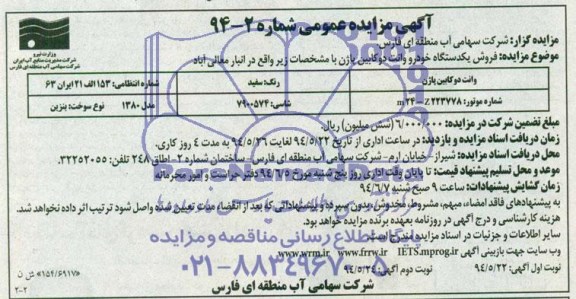 آگهی مزایده عمومی شماره ۲-۹۴
وزارت نیرو
شرکت مدیریت منابع آب ایران
شرکت سهامی آب منطقه ای فارس
مزایده گزار: شرکت سهامی آب منطقه ای فارس
موضوع مزایده: فروش یکدستگاه خودرو وانت دوکابین پاژن با مشخصات زیر واقع در انبار معالی آباد
وانت دوکابین پاژن
رنگ: سفید
شماره انتظامی: ۱۵۳ الف ۲۱ ایران ۶۳
شماره موتور: m۲۴-Z۲۲۳۷۷۸
شاسی: ۷۹۰۰۵۷۴
مدل ۱۳۸۰
نوع سوخت: بنزین
مبلغ تضمین شرکت در مزایده: ۶/۰۰۰/۰۰۰ (شش میلیون) ریال.
زمان دریافت اسناد مزایده و بازدید: در ساعات اداری از تاریخ ۹۴/۵/۲۲ لغایت ۹۴/۵/۲۶ به مدت ۴ روز کاری.
محل دریافت اسناد مزایده: شیراز خیابان ارم - شرکت سهامی آب منطقه ای فارس - ساختمان شماره ۲ - اطاق ۲۴۸ تلفن: ۳۲۲۵۲۰۵۵
موعد و محل تسلیم پیشنهاد قیمت: تا پایان وقت اداری روز پنج شنبه مورخ ۹۴/۶/۵ دفتر حراست و امور محرمانه
زمان گشایش پیشنهادات: ساعت ۹ صبح شنبه ۹۴/۶/۷
به پیشنهادهای فاقد امضاء، مبهم، مشروط، مخدوش، بدون سپرده و پیشنهاداتی که بعد از انقضاء مدت تعیین شده واصل شود ترتیب اثر داده نخواهد شد.
هزینه کارشناسی و درج آگهی در روزنامه بعهده برنده مزایده خواهد بود.
سایر اطلاعات و جزئیات در اسناد مزایده مندرج است.
وب سایت جهت بازبینی آگهی IETS.mporg.ir www.frrw.ir www.wrm.ir
نوبت اول آگهی: ۹۴/۵/۲۲
نوبت دوم آگهی: ۹۴/۵/۲۴
شرکت سهامی آب منطقه ای فارس
۱۵۴/۶۹۱۷/ش ن
۲-۲
پایگاه اطلاع رسانی مناقصه و مزایده
۰۲۱-۸۸۳۴۹۶۷۰-۵